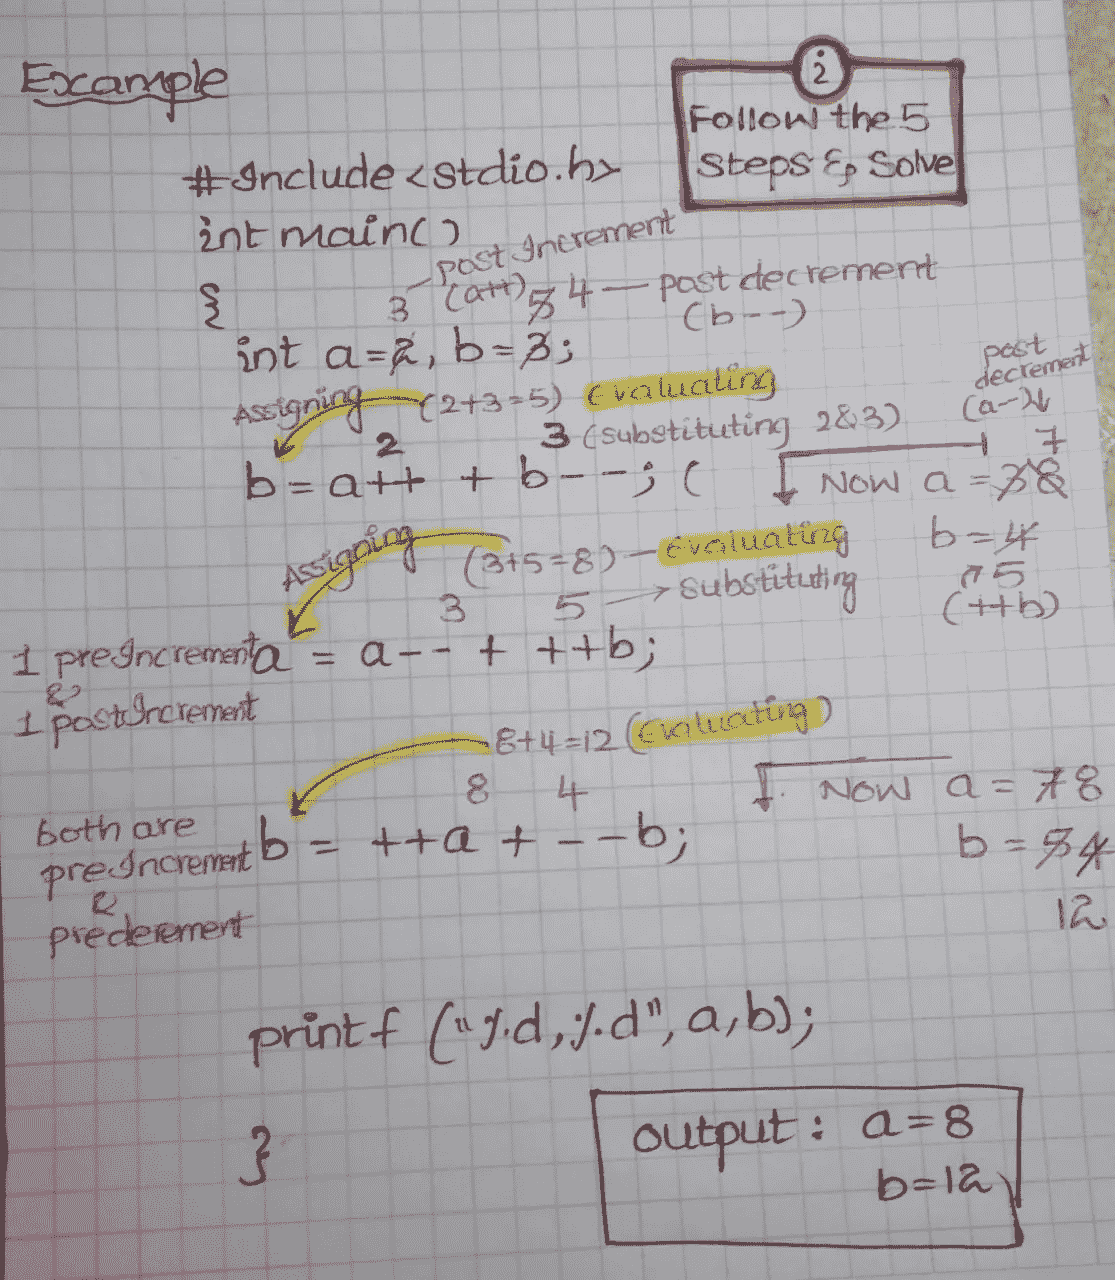 Example
i
Follow the 5
Steps & Solve
#Include <stdio.h>
int main()
{
post Increment
(a++)
3
5 4 — post decrement
(b--)
int a=2, b=3;
Assigning (2+3=5) Evaluating
2 3 (substituting 2&3)
b = a++ + b--; (
post
decrement
(a--)
7
Now a = 3 8
b = 4
5
(++b)
Assigning (3+5=8) — Evaluating
3 5 → substituting
1 preIncrement
&
1 postIncrement
a = a-- + ++b;
8+4=12 (Evaluating)
8 4
both are
preIncrement
&
prederement
b = ++a + --b;
Now a = 7 8
b = 5 4
12
printf ("%d,%d", a,b);
}
output: a=8
b=12